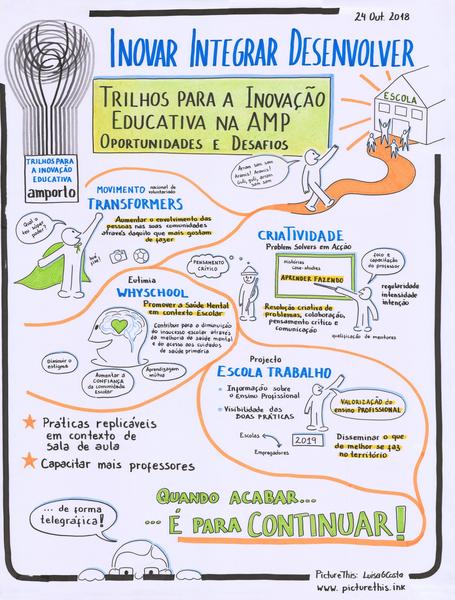 24 Out. 2018
INOVAR INTEGRAR DESENVOLVER
TRILHOS PARA A INOVAÇÃO
EDUCATIVA NA AMP
OPORTUNIDADES E DESAFIOS
ESCOLA
TRILHOS PARA
A INOVAÇÃO
EDUCATIVA
amporto
Aram sam sam
Aram sam sam
Guli, guli, aram
sam sam
MOVIMENTO nacional de
voluntariado
TRANSFORMERS
Qual o
teu super
poder?
Aumentar o envolvimento das
pessoas nas suas comunidades
através daquilo que mais gostam
de fazer
PENSAMENTO
CRÍTICO
CRIATIVIDADE
Problem Solvers em Acção
histórias
case-studies
APRENDER FAZENDO
foco e
capacitação
do professor
regularidade
intensidade
intenção
Resolução criativa de
problemas, colaboração,
pensamento crítico e
comunicação
qualificação de mentores
Eutimia
WHYSCHOOL
Promover a Saúde Mental
em contexto Escolar
Contribuir para a diminuição
do insucesso escolar através
da melhoria da saúde mental
e do acesso aos cuidados
de saúde primária
Diminuir o
estigma
Aumentar a
CONFIANÇA
da comunidade
Escolar
Aprendizagem
mútua
Projecto
ESCOLA TRABALHO
Informação sobre
o Ensino Profissional
Visibilidade das
BOAS PRÁTICAS
VALORIZAÇÃO do
ensino PROFISSIONAL
Escolas
2019
Empregadores
Disseminar o que
de melhor se faz
no território
Práticas replicáveis
em contexto de
sala de aula
Capacitar mais professores
QUANDO ACABAR...
... É PARA CONTINUAR!
... de forma
telegráfica!
PictureThis: Luisa6Costa
www. picturethis.ink